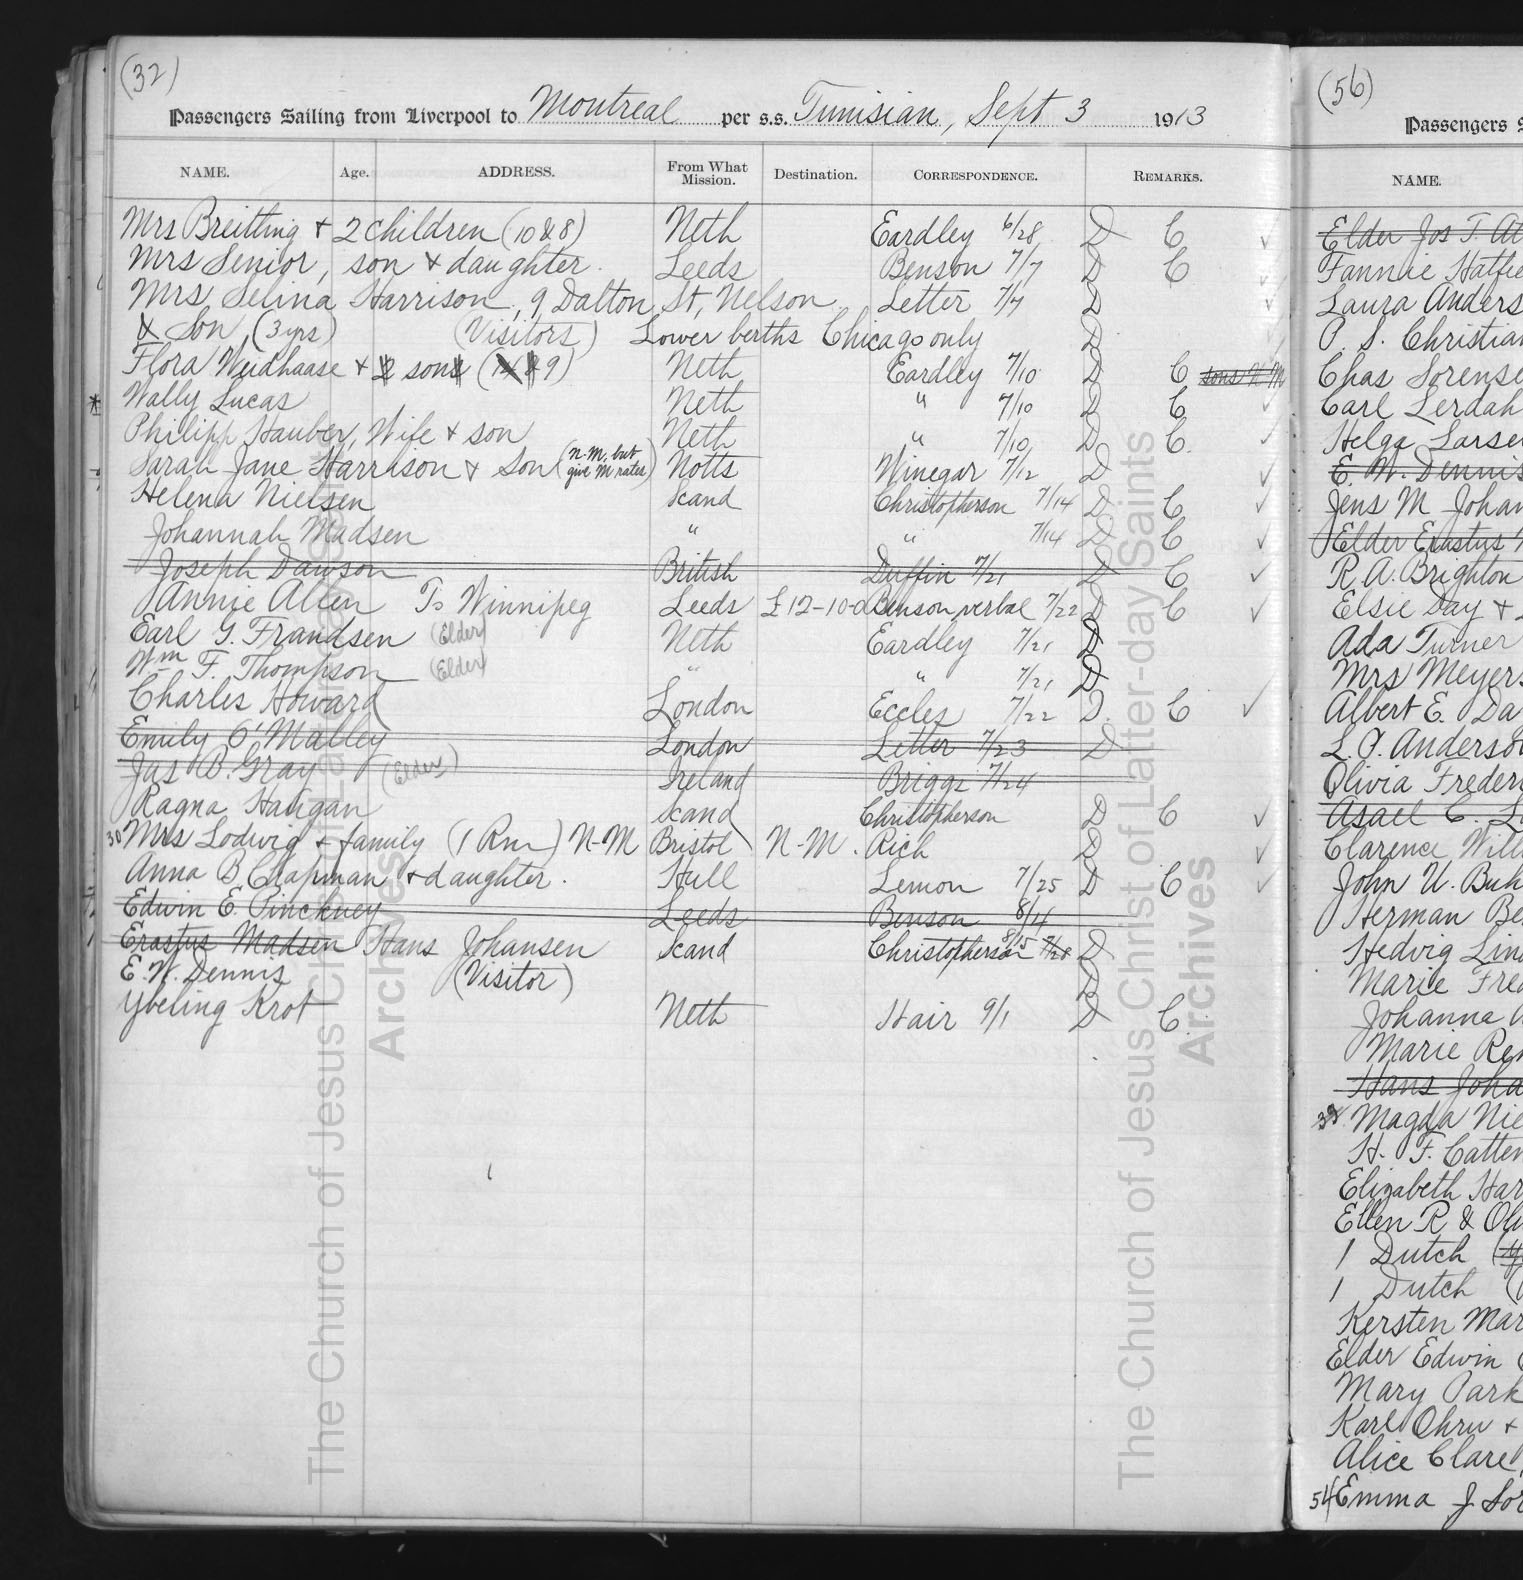 (32)
Passengers Sailing from Liverpool to Montreal per s.s. Tunisian, Sept 3 1913
NAME. Age. ADDRESS. From What Mission. Destination. CORRESPONDENCE. REMARKS.
Mrs Breitling + 2 children (10 & 8) Neth Eardley 6/28 D C ✓
Mrs Senior, son + daughter. Leeds Benson 7/7 D C ✓
Mrs. Selina Harrison, 9 Dalton St, Nelson Letter 7/7 D ✓
& Son (3 yrs) (Visitors) Lower berths Chicago only D
Flora Weidhaase + 2 sons (9) Neth Eardley 7/10 D C sons N M
* Wally Lucas Neth " 7/10 D C ✓
Philipp Hauber, Wife + son Neth " 7/10 D. C ✓
Sarah Jane Harrison + Son (N-M, but give M rates) Notts Winegar 7/12 D ✓
Helena Nielsen Scand Christopherson 7/14 D C ✓
Johannah Madsen " " 7/14 D C ✓
Joseph Dawson British Duffin 7/21 D C ✓
Annie Allen To Winnipeg Leeds £12-10-0 Benson verbal 7/22 D C ✓
Earl G. Frandsen (Elder) Neth Eardley 7/21 D
Wm F. Thompson (Elder) " " 7/21 D
Charles Howard London Eccles 7/22 D. C ✓
Emily O'Malley London Letter 7/23 D
Jas B. Gray (Elder) Ireland Briggs 7/24
Ragna Haugan Scand Christopherson D C ✓
30 Mrs Lodwig + family (1 Rm) N-M Bristol N-M. Rich D ✓
Anna B Chapman + daughter. Hull Lemon 7/25 D C ✓
Edwin E. Pinckney Leeds Benson 8/4
Erastus Madsen Hans Johansen Scand Christopherson 8/15 7/28 D
E. W. Dennis (Visitor) D
Ybeling Krot Neth Hair 9/1 D C
The Church of Jesus Christ of Latter-day Saints
Archives
The Church of Jesus Christ of Latter-day Saints
Archives
(56)
Passengers S
NAME.
Elder Jos T. Al
Fannie Hatfie
Laura Anders
P. S. Christian
Chas Sorense
Carl Lerdah
Helga Larse
E. W. Dennis
Jens M Johan
Elder Erastus M
R. A. Brighton
Elsie Day +
Ada Turner
Mrs Meyers
Albert E. Da
L. P. Anderso
Olivia Freder
Asael C. L
Clarence Will
John U. Buh
Herman Be
Hedvig Lin
Marie Fred
Johanna A
Marie Ren
Hans Joha
39 Magda Nie
H. F. Catter
Elizabeth Har
Ellen R & Oli
1 Dutch
1 Dutch
Kersten Mar
Elder Edwin
Mary Park
Karl Ohru +
Alice Clare
54 Emma J Sor